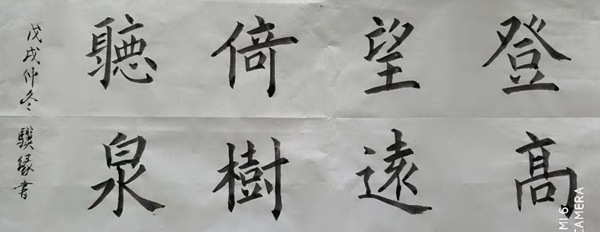 登高
望遠
倚樹
聽泉
戊戌仲冬 驥緣書
MI 6
CAMERA